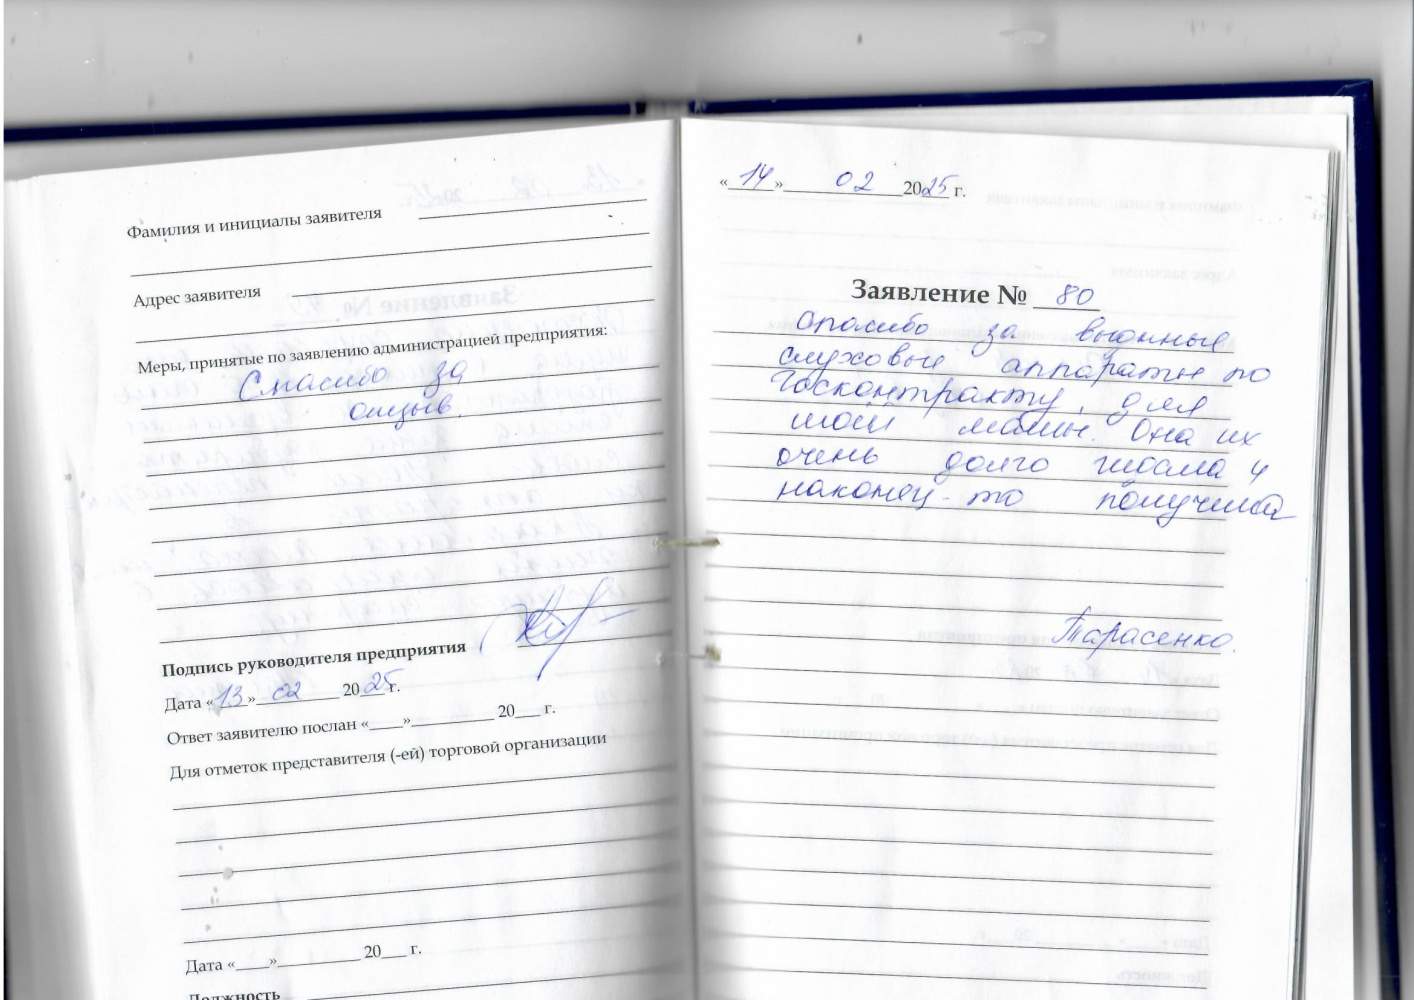 Фамилия и инициалы заявителя
Адрес заявителя
Меры, принятые по заявлению администрацией предприятия:
Спасибо за
отзыв.
Подпись руководителя предприятия
Дата «13» 02 2025 г.
Ответ заявителю послан «____»__________ 20___ г.
Для отметок представителя (-ей) торговой организации
Дата «____»__________ 20___ г.
Должность
«14» 02 2025 г.
Заявление № 80
Спасибо за
слуховые аппараты по
Госконтракту, для
моей мамы. Она их
очень долго ждала и
наконец-то получила
Тарасенко.